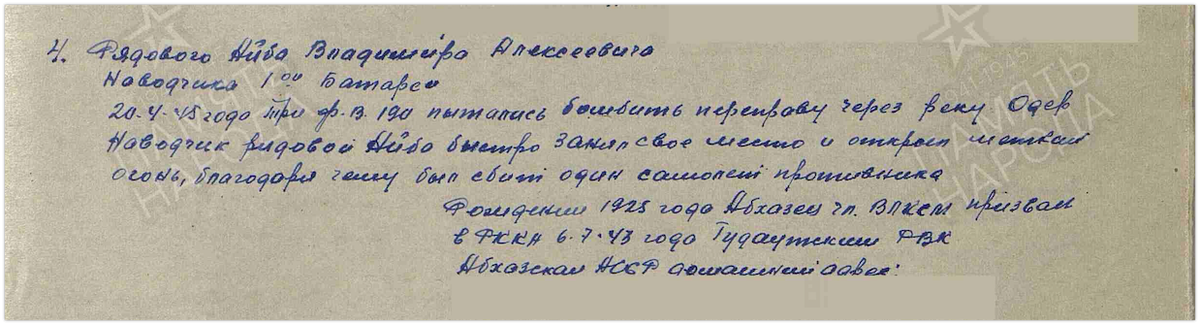 4. Рядового Айба Владимира Алексеевича
Наводчика 1ой Батареи
20.4.45 года Три ф.В. 190 пытались бомбить переправу через реку Одер
Наводчик рядовой Айба быстро занял свое место и открыл меткий
огонь, благодаря чему был сбит один самолет противника
Рождения 1925 года Абхазец чл. ВЛКСМ призван
в РККА 6.7.43 года Гудаутским РВК
Абхазская АССР домашний адрес:
ПАМЯТЬ
НАРОДА